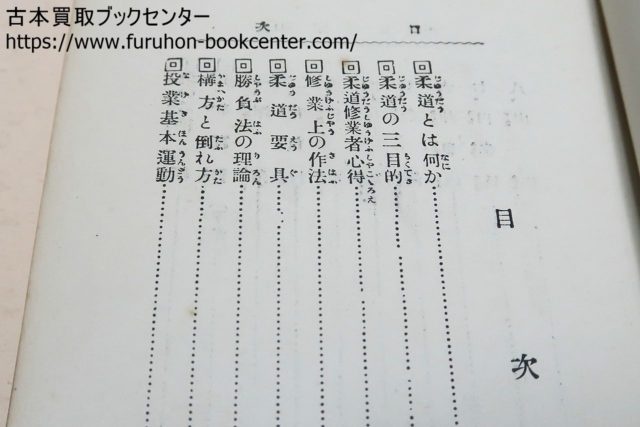 古本買取ブックセンター
https://www.furuhon-bookcenter.com/
目次
目次
柔道とは何か
柔道の三目的
柔道修業者心得
修業上の作法
柔道要具
勝負法の理論
構方と倒れ方
投業基本運動